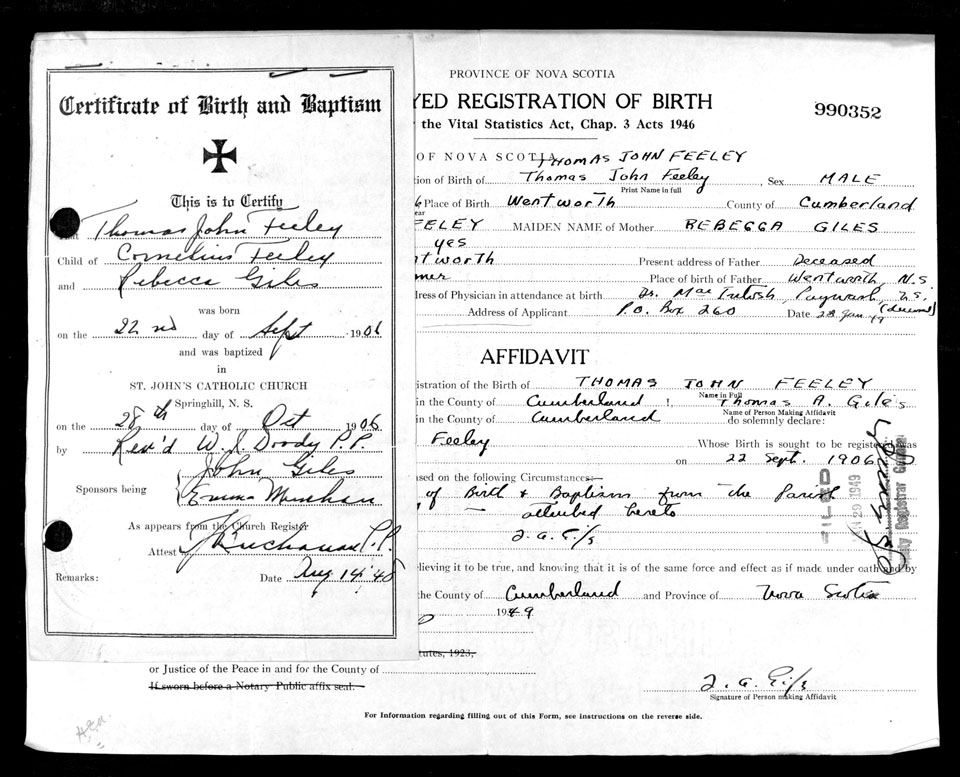 Certificate of Birth and Baptism
This is to Certify
Thomas John Feeley
Child of Cornelius Feeley
and Rebecca Giles
was born
on the 22nd day of Sept 1906
and was baptized
in
ST. JOHN'S CATHOLIC CHURCH
Springhill, N. S.
on the 28th day of Oct 1906
by Rev'd W. Doody P.P.
John Giles
Sponsors being
Emma
As appears from the Church Register
Attest J Buchanan P.P.
Remarks: Date Aug 14 '48
PROVINCE OF NOVA SCOTIA
YED REGISTRATION OF BIRTH
990352
the Vital Statistics Act, Chap. 3 Acts 1946
OF NOVA SCOTIA THOMAS JOHN FEELEY
tion of Birth of Thomas John Feeley Sex MALE
Print Name in full
6 Place of Birth Wentworth County of Cumberland
FEELEY MAIDEN NAME of Mother REBECCA GILES
yes
ntworth Present address of Father Deceased
mer Place of birth of Father Wentworth, N.S.
dress of Physician in attendance at birth Dr. MacIntosh Pugwash N.S.
(deceased)
Address of Applicant P.O. Box 260 Date 28 Jan 49
AFFIDAVIT
istration of the Birth of THOMAS JOHN FEELEY
Name in Full
in the County of Cumberland Thomas A. Giles
Name of Person Making Affidavit
in the County of Cumberland do solemnly declare:
Feeley Whose Birth is sought to be registered was
on 22 Sept. 1906
ased on the following Circumstances
of Birth & Baptism from the Parish
attached hereto
T. A. Giles
FILED
JAN 29 1949
Registrar
elieving it to be true, and knowing that it is of the same force and effect as if made under oath and by
the County of Cumberland and Province of Nova Scotia
1949
tutes, 1923,
or Justice of the Peace in and for the County of
If sworn before a Notary Public affix seal.
T. A. Giles
Signature of Person making Affidavit
For Information regarding filling out of this Form, see instructions on the reverse side.